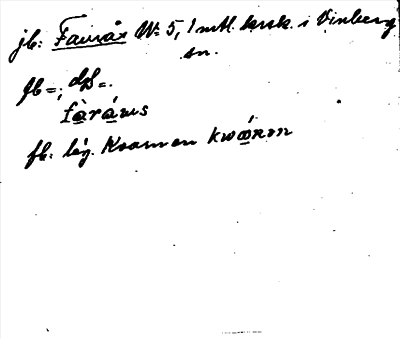 jb: Faurås Nº 5, 1 mtl. krsk. i Vinberg
sn.
fb =; dß =.
fàráɯs
fb: läg. Kvarnen kwáron